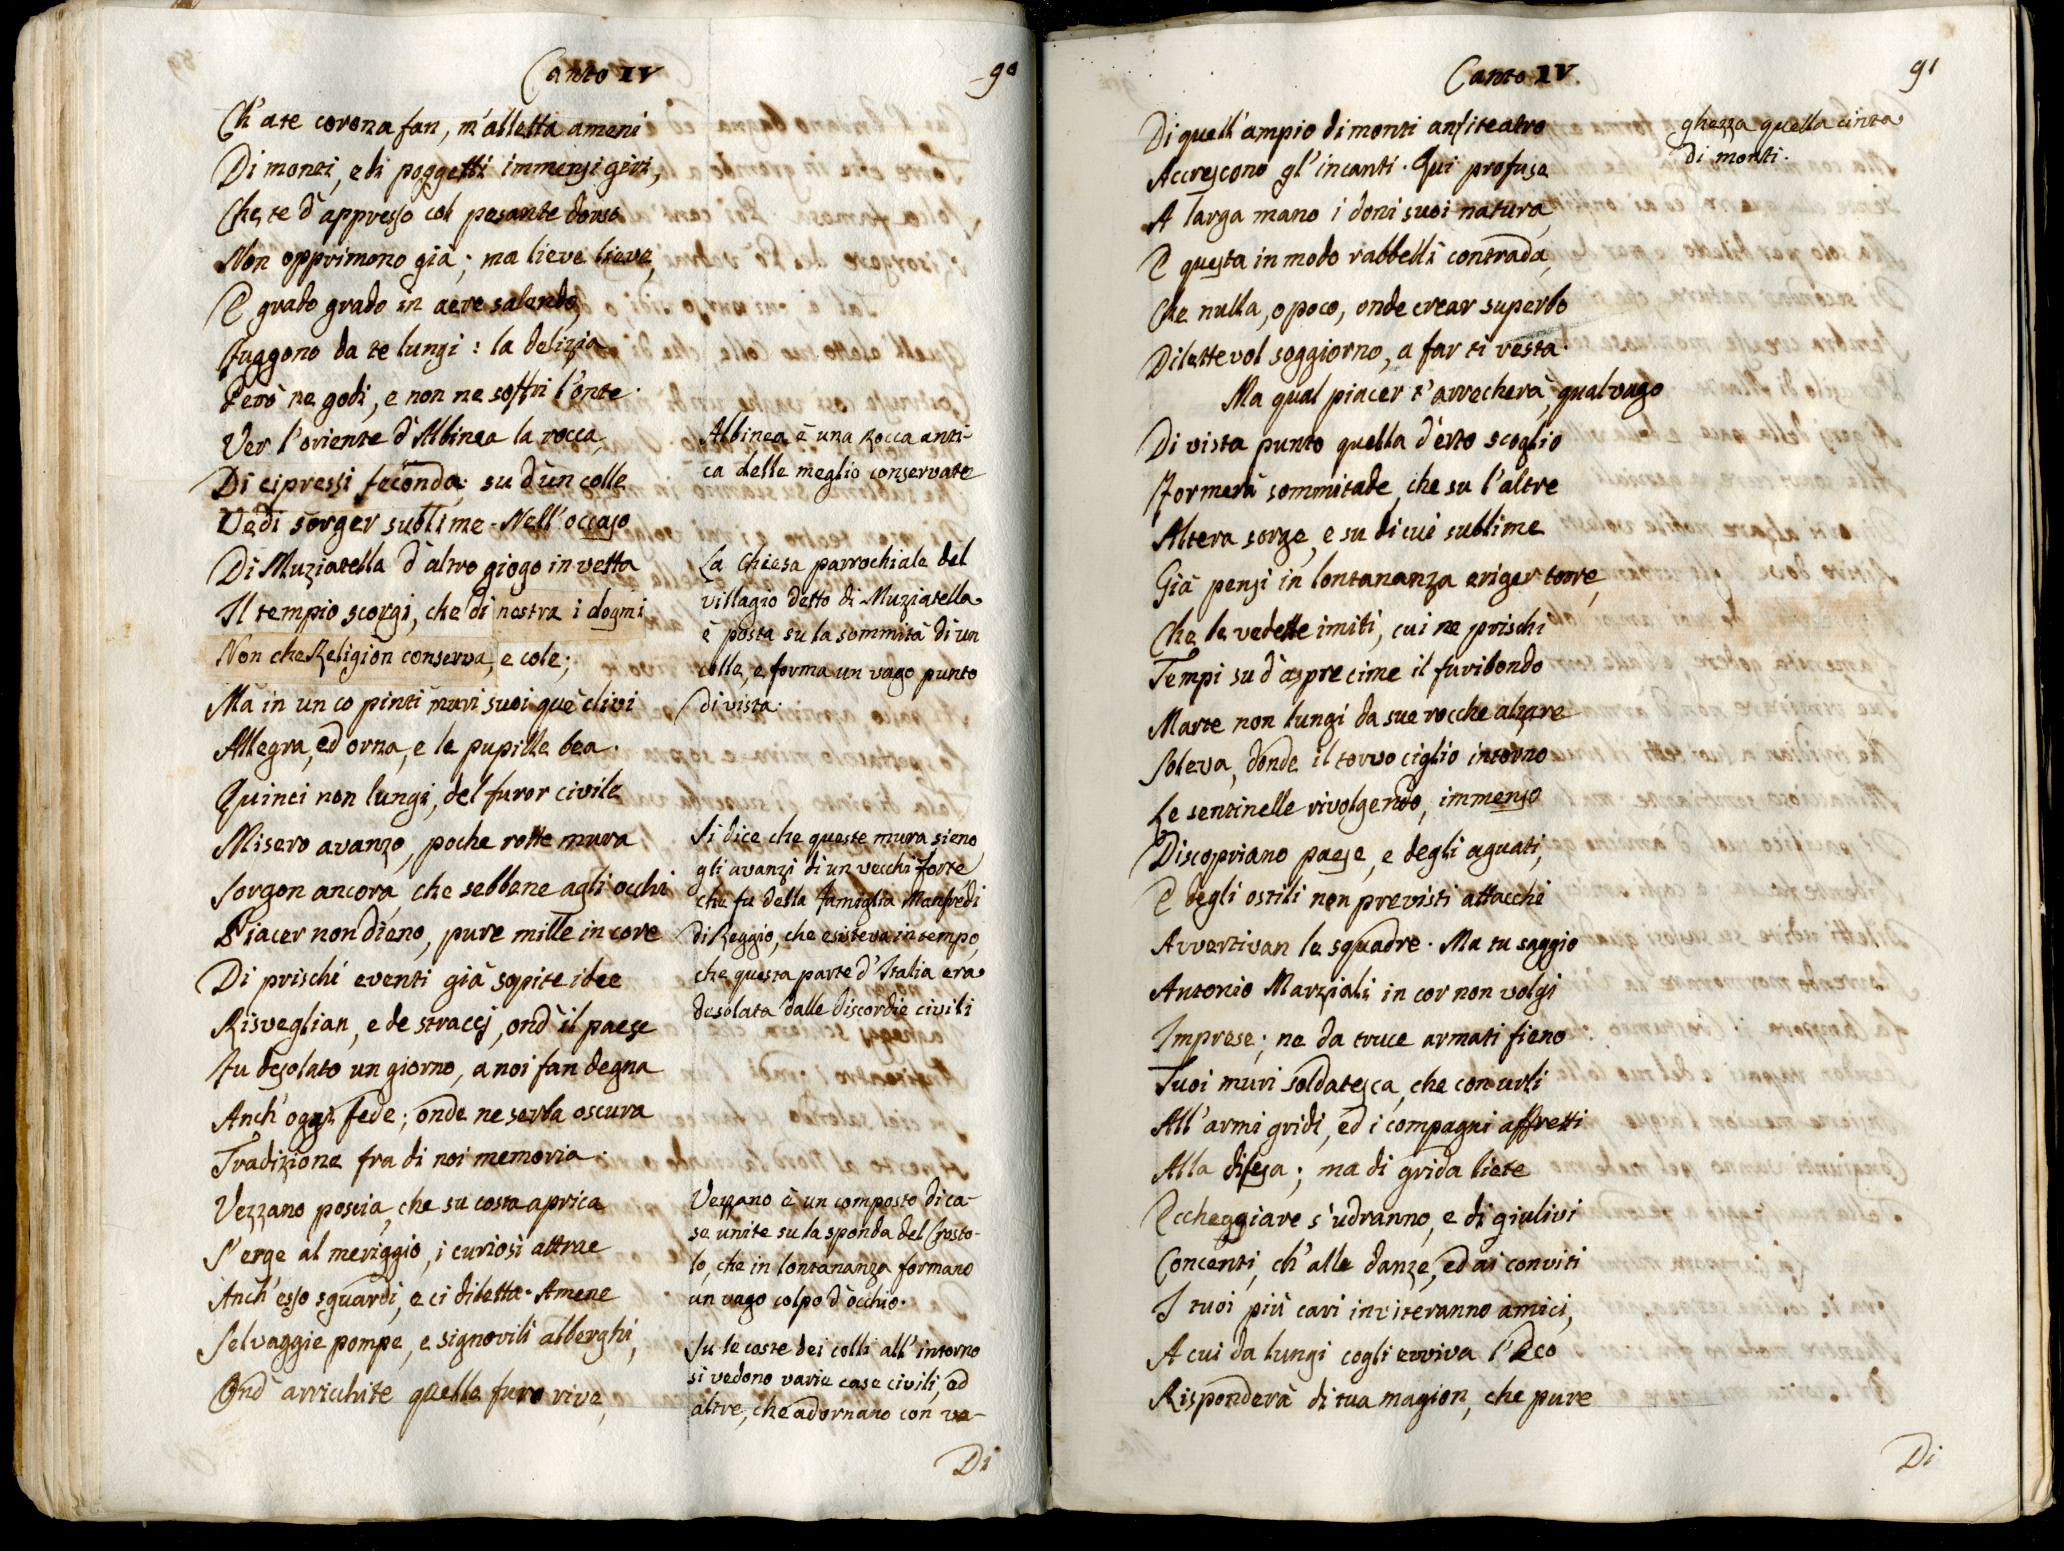 Canto IV
90
Ch' a te corona fan, m'alletta ameni
Di monti, e di poggetti immensi giri,
Che te d'appresso col pesante dorso
Non opprimono già; ma lieve lieve,
E grado grado in aere salendo,
Fuggono da te lungi: la delizia
Però ne godi, e non ne soffri l'onte.
Ver l'oriente d'Albinea la rocca,
Di cipressi feconda, su d'un colle
Vedi sorger sublime. Nell'occaso
Di Muziatella d'altro giogo in vetta
Il tempio scorgi, che di nostra i dogmi
Non che Religion conserva, e cole;
Ma in un co pinti muri suoi que' clivi
Allegra, ed orna, e le pupille bea.
Quinci non lungi, del furor civile
Misero avanzo, poche rotte mura
Sorgon ancora, che sebbene agli occhi
Piacer non dieno, pure mille in core
Di prischi eventi già sopite idee
Risveglian, e de straccj, ond' il paese
Fu desolato un giorno, a noi fan degna
Anch' oggi fede; onde ne serba oscura
Tradizione fra di noi memoria.
Vezzano poscia, che su costa aprica
S' erge al meriggio, i curiosi attrae
Anch' esso sguardi, e ci diletta. Amene
Selvaggie pompe, e signorili alberghi,
Ond' arricchite quelle furo rive,
Albinea è una Rocca anti-
ca delle meglio conservate
La Chiesa parrochiale del
villagio detto di Muziatella
è posta su la sommità di un
colle, e forma un vago punto
di vista.
Si dice che queste mura sieno
gli avanzi di un vecchi forte
che fu della famiglia Manfredi
di Reggio, che esisteva in tempo,
che questa parte d'Italia era
desolata dalle discordie civili
Vezzano è un composto di ca-
se unite su la sponda del Crosto-
lo, che in lontananza formano
un vago colpo d'occhio.
Su le coste dei colli all' intorno
si vedono varie case civili, ed
altre, che adornano con va-
Di
Canto IV.
91
Di quell' ampio di monti anfiteatro
Accrescono gl' incanti. Qui profuse
A larga mano i doni suoi natura,
E questa in modo rabbellì contrada,
Che nulla, o poco, onde crear superbo
Dilettevol soggiorno, a far ti resta.
Ma qual piacer t' arrecherà, qual vago
Di vista punto quella d' erto scoglio
Formerà sommitade, che su l'altre
Altera sorge, e su di cui sublime
Già pensi in lontananza eriger torre,
Che le vedette imiti, cui ne prischi
Tempi su d' aspre cime il furibondo
Marte non lungi da sue rocche alzare
Soleva, donde il torvo ciglio intorno
Le sentinelle rivolgendo, immenso
Discopriano paese, e degli aguati,
E degli ostili non previsti attacchi
Avvertivan le squadre. Ma tu saggio
Antonio Marziali in cor non volgi
Imprese; ne da truce armati fieno
Tuoi muri soldatesca, che con urli
All' armi gridi, ed i compagni affretti
Alla difesa; ma di grida liete
Eccheggiare s' udranno, e di giulivi
Concenti, ch' alle danze, ed ai conviti
I tuoi più cari inviteranno amici,
A cui da lungi cogli evviva l' Eco
Risponderà di tua magion, che pure
ghezza quella cinta
di monti.
Di